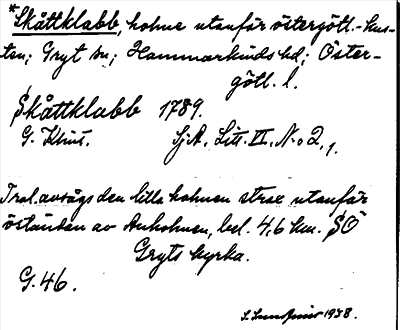 *Skåttklabb, holme utanför östergötl.-kus-
ten; Gryt sn; Hammarkinds hd; Öster-
götl. l.
Skåttklabb 1789.
G. Klint. SjA, Litt. VI, No 2, 1.
Trol. avsågs den lilla holmen strax utanför
öständen av Anholmen, bel. 4,6 km. SÖ
Gryts kyrka.
G. 46.
1938.